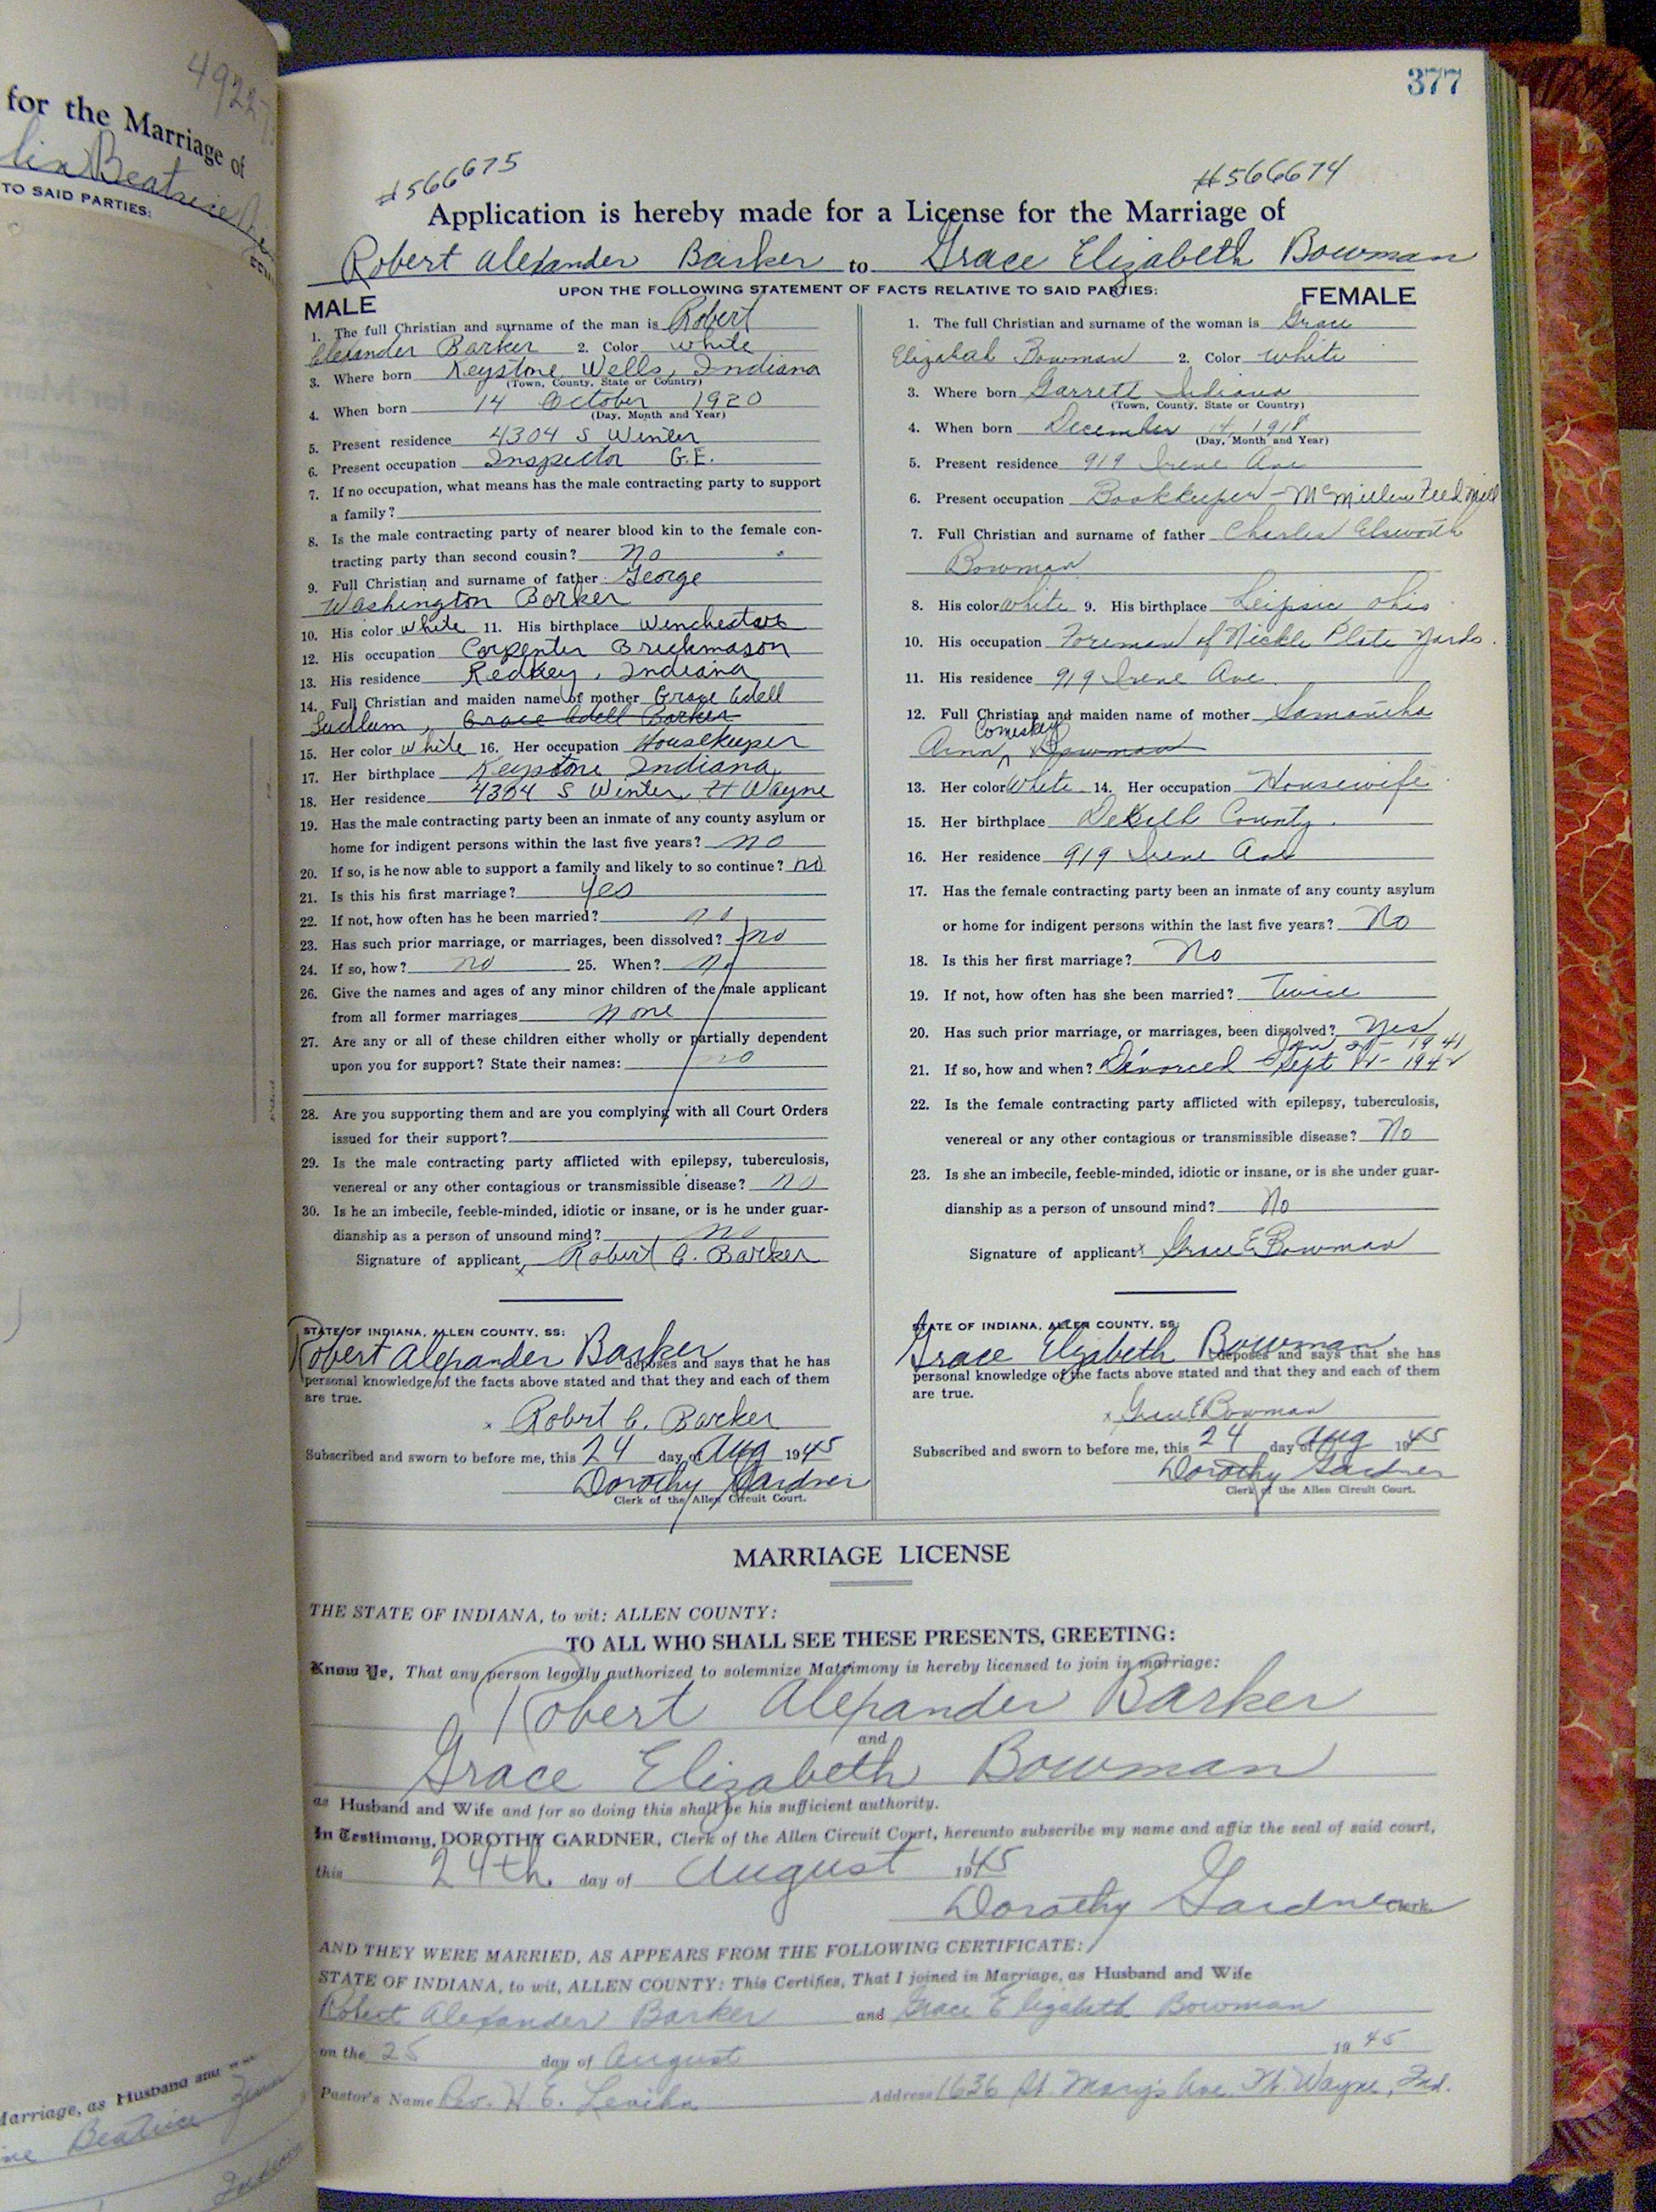 4922
for the Marriage of
Beatrice
TO SAID PARTIES:
377
#566675 #566674
Application is hereby made for a License for the Marriage of
Robert Alexander Barker to Grace Elizabeth Bowman
UPON THE FOLLOWING STATEMENT OF FACTS RELATIVE TO SAID PARTIES:
MALE
1. The full Christian and surname of the man is Robert
Alexander Barker 2. Color white
3. Where born Keystone Wells, Indiana
(Town, County, State or Country)
4. When born 14 October 1920
(Day, Month and Year)
5. Present residence 4304 S Winter
6. Present occupation Inspector G.E.
7. If no occupation, what means has the male contracting party to support
a family?
8. Is the male contracting party of nearer blood kin to the female con-
tracting party than second cousin? no
9. Full Christian and surname of father George
Washington Barker
10. His color white 11. His birthplace Winchester
12. His occupation Carpenter Brickmason
13. His residence Redkey, Indiana
14. Full Christian and maiden name of mother Grace Adell
Ludlum, Grace Adell Barker
15. Her color white 16. Her occupation Housekeeper
17. Her birthplace Keystone Indiana
18. Her residence 4304 S Winter Ft Wayne
19. Has the male contracting party been an inmate of any county asylum or
home for indigent persons within the last five years? no
20. If so, is he now able to support a family and likely to so continue? no
21. Is this his first marriage? yes
22. If not, how often has he been married? no
23. Has such prior marriage, or marriages, been dissolved? no
24. If so, how? no 25. When? no
26. Give the names and ages of any minor children of the male applicant
from all former marriages none
27. Are any or all of these children either wholly or partially dependent
upon you for support? State their names: no
28. Are you supporting them and are you complying with all Court Orders
issued for their support?
29. Is the male contracting party afflicted with epilepsy, tuberculosis,
venereal or any other contagious or transmissible disease? no
30. Is he an imbecile, feeble-minded, idiotic or insane, or is he under guar-
dianship as a person of unsound mind? no
Signature of applicant x Robert A. Barker
STATE OF INDIANA, ALLEN COUNTY, SS:
Robert Alexander Barker deposes and says that he has
personal knowledge of the facts above stated and that they and each of them
are true.
x Robert A. Barker
Subscribed and sworn to before me, this 24 day of Aug 1945
Dorothy Gardner
Clerk of the Allen Circuit Court.
FEMALE
1. The full Christian and surname of the woman is Grace
Elizabeth Bowman 2. Color white
3. Where born Garrett Indiana
(Town, County, State or Country)
4. When born December 14, 1918
(Day, Month and Year)
5. Present residence 919 Irene Ave
6. Present occupation Bookkeeper - McMillen Feed Mill
7. Full Christian and surname of father Charles Elsworth
Bowman
8. His color White 9. His birthplace Leipsic Ohio
10. His occupation Foreman of Nickle Plate Yards.
11. His residence 919 Irene Ave.
12. Full Christian and maiden name of mother Samantha
Comiskey
Ann, Bowman
13. Her color White 14. Her occupation Housewife.
15. Her birthplace DeKalb County.
16. Her residence 919 Irene Ave
17. Has the female contracting party been an inmate of any county asylum
or home for indigent persons within the last five years? No
18. Is this her first marriage? No
19. If not, how often has she been married? Twice
20. Has such prior marriage, or marriages, been dissolved? Yes
1941
21. If so, how and when? Divorced - Sept 1942
22. Is the female contracting party afflicted with epilepsy, tuberculosis,
venereal or any other contagious or transmissible disease? No
23. Is she an imbecile, feeble-minded, idiotic or insane, or is she under guar-
dianship as a person of unsound mind? No
Signature of applicant x Grace E Bowman
STATE OF INDIANA, ALLEN COUNTY, SS:
Grace Elizabeth Bowman deposes and says that she has
personal knowledge of the facts above stated and that they and each of them
are true.
x Grace E Bowman
Subscribed and sworn to before me, this 24 day of Aug 1945
Dorothy Gardner
Clerk of the Allen Circuit Court.
MARRIAGE LICENSE
THE STATE OF INDIANA, to wit: ALLEN COUNTY:
TO ALL WHO SHALL SEE THESE PRESENTS, GREETING:
Know Ye, That any person legally authorized to solemnize Matrimony is hereby licensed to join in marriage:
Robert Alexander Barker
and
Grace Elizabeth Bowman
as Husband and Wife and for so doing this shall be his sufficient authority.
In Testimony, DOROTHY GARDNER, Clerk of the Allen Circuit Court, hereunto subscribe my name and affix the seal of said court,
this 24th. day of August 1945
Dorothy Gardner Clerk
AND THEY WERE MARRIED, AS APPEARS FROM THE FOLLOWING CERTIFICATE:
STATE OF INDIANA, to wit, ALLEN COUNTY: This Certifies, That I joined in Marriage, as Husband and Wife
Robert Alexander Barker and Grace Elizabeth Bowman
on the 25 day of August 1945
Pastor's Name Rev. H. E. Address 1636 St. Mary's Ave. Ft. Wayne, Ind.
Marriage, as Husband and
Beatrice
Indiana